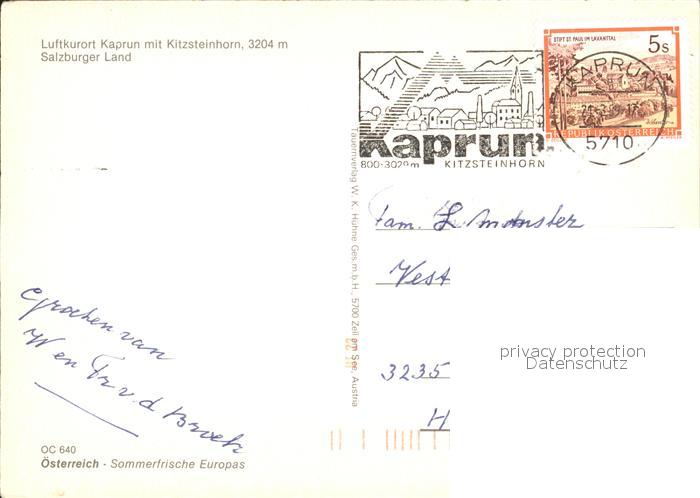 Luftkurort Kaprun mit Kitzsteinhorn, 3204 m
Salzburger Land
STIFT ST. PAUL IM LAVANTTAL
5 s
REPUBLIK ÖSTERREICH
KAPRUN
5710
Kaprun
800-3029m KITZSTEINHORN
Tauernverlag W. K. Hühne Ges.m.b.H., 5700 Zell am See, Austria
Fam.
Vest
3235
H
privacy protection
Datenschutz
Groeten van
W en Tr v.d. Broek
OC 640
Österreich - Sommerfrische Europas